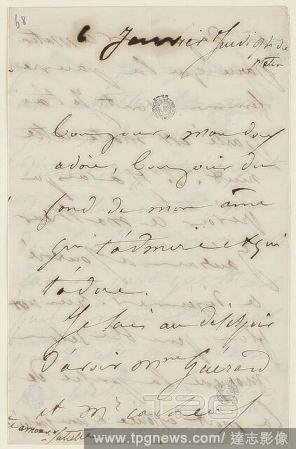 68
6 Janvier Jeudi 9h du
matin
Bonjour, mon doux
adoré, bonjour du
fond de mon âme
qui t'admire et qui
t'adore.
Je suis au désespoir
d'avoir Mme Guérard
et Mr
Juliette
TPG
www.tpgnews.com / 達志影像